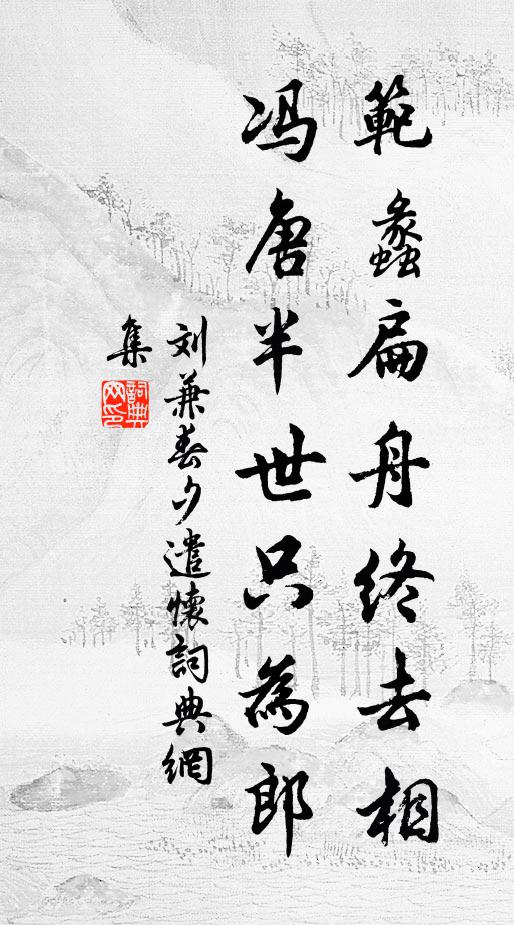 範蠡扁舟終去相
冯唐半世只為郎
刘兼春夕遣懷詞典網
集
詞典网印